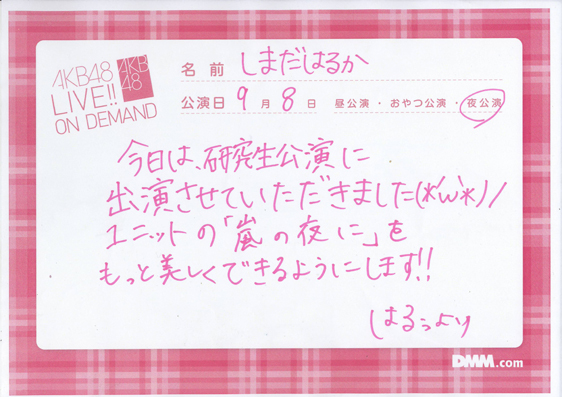 AKB48
LIVE!!
ON DEMAND
AKB
48
名前 しまだはるか
公演日 9月8日 昼公演・おやつ公演・夜公演
今日は、研究生公演に
出演させていただきました(*'ω'*)/
ユニットの「嵐の夜に」を
もっと美しくできるようにします!!
はるぅより
DMM.com